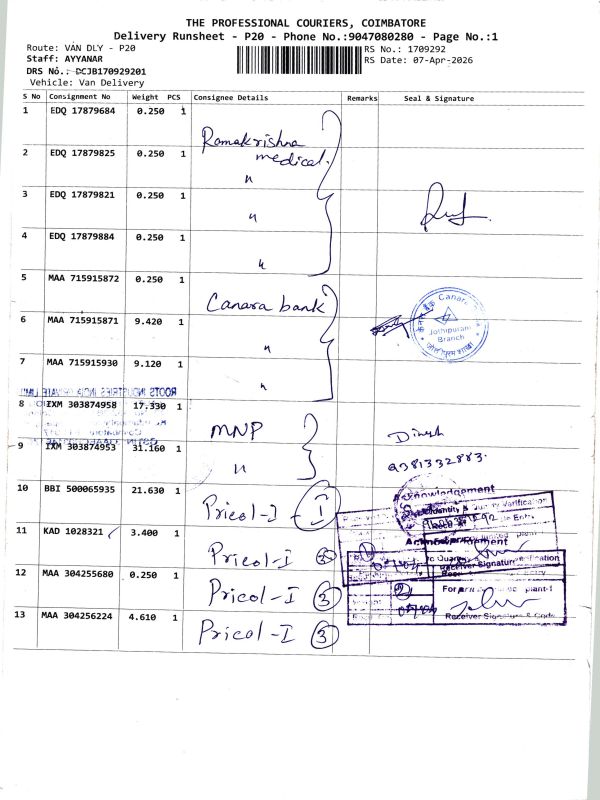 THE PROFESSIONAL COURIERS, COIMBATORE
Delivery Runsheet - P20 - Phone No.:9047080280 - Page No.:1
Route: VAN DLY - P20
RS No.: 1709292
Staff: AYYANAR
RS Date: 07-Apr-2026
DRS No.: DCJB170929201
Vehicle: Van Delivery
S No Consignment No Weight PCS Consignee Details Remarks Seal & Signature
1 EDQ 17879684 0.250 1 Ramakrishna medical.
2 EDQ 17879825 0.250 1 "
3 EDQ 17879821 0.250 1 "
4 EDQ 17879884 0.250 1 "
5 MAA 715915872 0.250 1 Canara bank
6 MAA 715915871 9.420 1 "
Canara
Jothipuram
Branch
7 MAA 715915930 9.120 1 "
ROOTS INDUSTRIES INDIA PRIVATE LIMI
8 IXM 303874958 17.330 1 MNP
Dinesh
9 IXM 303874953 31.160 1 "
9381332883.
10 BBI 500065935 21.630 1 Pricol-I - 1
Acknowledgement
11 KAD 1028321 3.400 1 Pricol-I 3
Acknowledgement
Receiver Signature
12 MAA 304255680 0.250 1 Pricol-I 3
plant-1
13 MAA 304256224 4.610 1 Pricol-I 3
Receiver Signature & Code